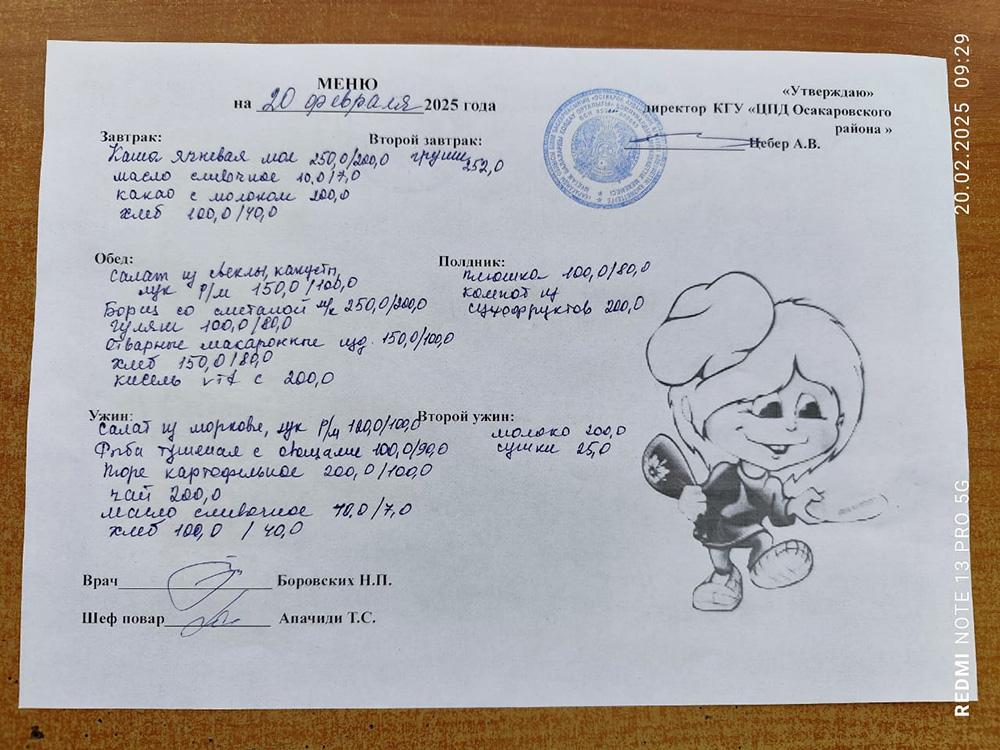 МЕНЮ
на 20 февраля 2025 года
«Утверждаю»
директор КГУ «ЦПД Осакаровского
района »
Цебер А.В.
Завтрак:
Каша ячневая мол 250,0/200,0
масло сливочное 10,0/7,0
какао с молоком 200,0
хлеб 100,0/40,0
Второй завтрак:
груши
252,0
Обед:
Салат из свеклы, капусты,
лук р/м 150,0/100,0
Борщ со сметаной м/к 250,0/200,0
Гуляш 100,0/80,0
Отварные макаронные изд. 150,0/100,0
хлеб 150,0/80,0
кисель vit c 200,0
Полдник:
Плюшка 100,0/80,0
компот из
сухофруктов 200,0
Ужин:
Салат из моркови, лук р/м 120,0/100,0
Рыба тушеная с овощами 100,0/90,0
Пюре картофельное 200,0/100,0
чай 200,0
масло сливочное 10,0/7,0
хлеб 100,0 / 40,0
Второй ужин:
молоко 200,0
сушки 25,0
Врач Боровских Н.П.
Шеф повар Апачиди Т.С.
REDMI NOTE 13 PRO 5G 20.02.2025 09:29